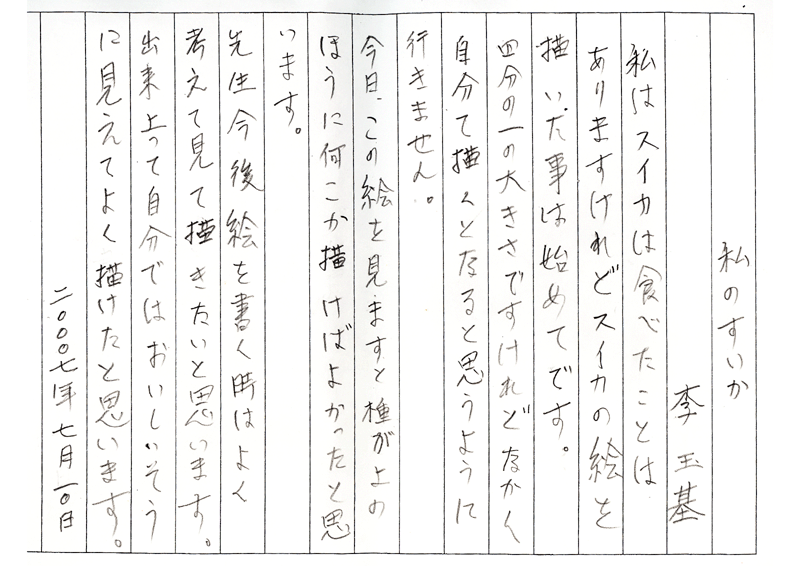 私のすいか
李玉基
私はスイカは食べたことは
ありますけれどスイカの絵を
描いた事は始めてです。
四分の一の大きさですけれどなかく
自分で描くとなると思うように
行きません。
今日、この絵を見ますと種が上の
ほうに何こか描けばよかったと思
います。
先生今後絵を書く時はよく
考えて見て描きたいと思います。
出来上って自分ではおいしいそう
に見えてよく描けたと思います。
二〇〇〇七年七月一〇日